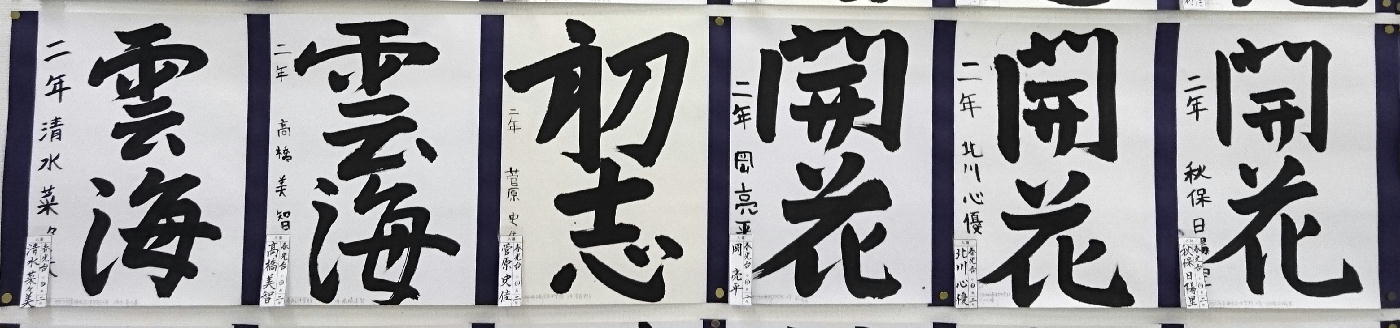 雲海
二年 清水 菜々
清水 菜々美
雲海
二年 高橋 美智
高橋 美智
初志
二年 菅原 史
菅原 史佳
開花
二年 岡 亮平
岡 亮平
開花
二年 北川 心優
北川 心優
開花
二年 秋保 日
秋保 日陽里